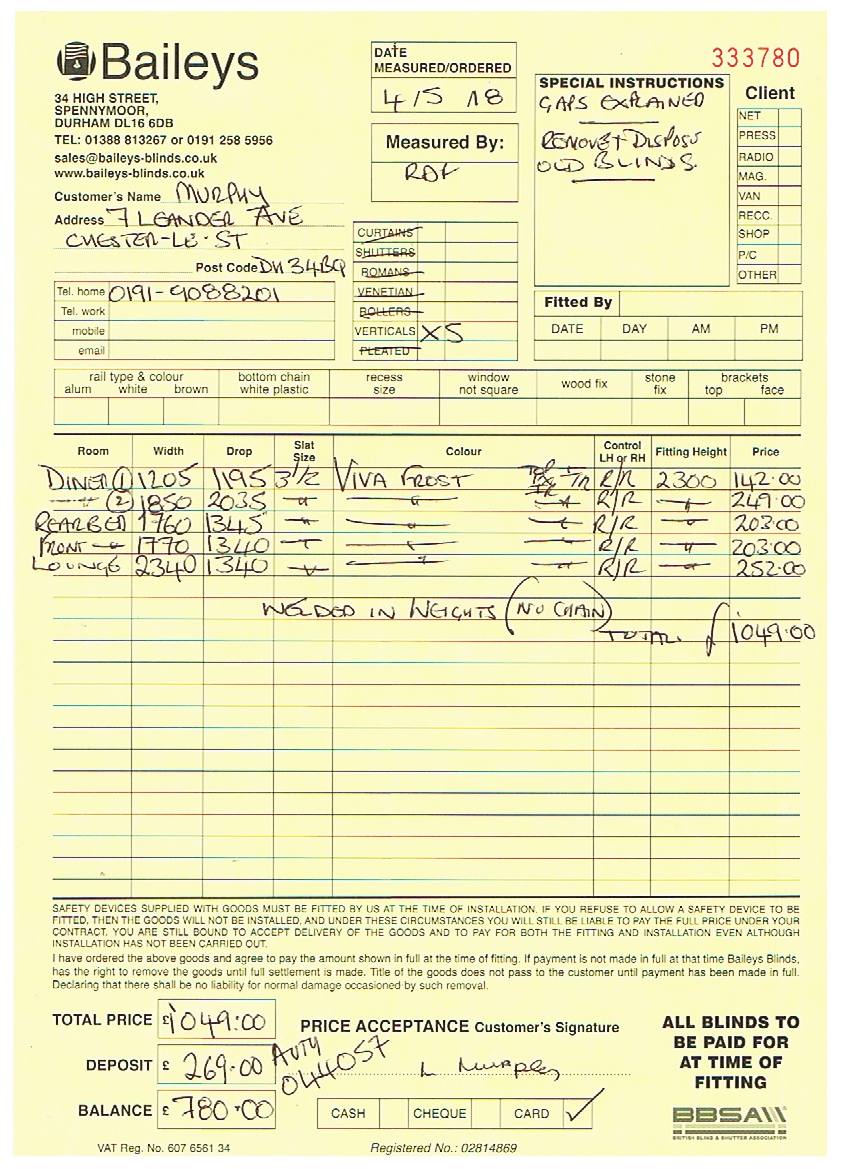 Baileys
34 HIGH STREET,
SPENNYMOOR,
DURHAM DL16 6DB
TEL: 01388 813267 or 0191 258 5956
sales@baileys-blinds.co.uk
www.baileys-blinds.co.uk
Customer's Name MURPHY
Address 7 LEANDER AVE
CHESTER-LE-ST
Post Code DH 34BQ
Tel. home 0191-9088201
Tel. work
mobile
email
DATE
MEASURED/ORDERED
4/5 18
Measured By:
CURTAINS
SHUTTERS
ROMANS
VENETIAN
ROLLERS
VERTICALS X5
PLEATED
333780
SPECIAL INSTRUCTIONS
GAPS EXPLAINED
REMOVE + DISPOSE
OLD BLINDS.
Client
NET
PRESS
RADIO
MAG.
VAN
RECC.
SHOP
P/C
OTHER
Fitted By
DATE DAY AM PM
rail type & colour
alum white brown
bottom chain
white plastic
recess
size
window
not square
wood fix
stone
fix
brackets
top face
Room Width Drop Slat Size Colour Control LH or RH Fitting Height Price
DINER (1) 1205 1195 3 1/2 VIVA FROST R/R 2300 142.00
-"- (2) 1850 2035 -"- -"- -"- R/R -"- 249.00
REARBED 1760 1345 -"- -"- -"- R/R -"- 203.00
FRONT -"- 1770 1340 -"- -"- -"- R/R -"- 203.00
LOUNGE 2340 1340 -"- -"- -"- R/R -"- 252.00
WELDED IN WEIGHTS (NO CHAIN)
TOTAL. £1049.00
SAFETY DEVICES SUPPLIED WITH GOODS MUST BE FITTED BY US AT THE TIME OF INSTALLATION. IF YOU REFUSE TO ALLOW A SAFETY DEVICE TO BE
FITTED, THEN THE GOODS WILL NOT BE INSTALLED, AND UNDER THESE CIRCUMSTANCES YOU WILL STILL BE LIABLE TO PAY THE FULL PRICE UNDER YOUR
CONTRACT. YOU ARE STILL BOUND TO ACCEPT DELIVERY OF THE GOODS AND TO PAY FOR BOTH THE FITTING AND INSTALLATION EVEN ALTHOUGH
INSTALLATION HAS NOT BEEN CARRIED OUT.
I have ordered the above goods and agree to pay the amount shown in full at the time of fitting. If payment is not made in full at that time Baileys Blinds,
has the right to remove the goods until full settlement is made. Title of the goods does not pass to the customer until payment has been made in full.
Declaring that there shall be no liability for normal damage occasioned by such removal.
TOTAL PRICE £1049:00
DEPOSIT £ 269.00
BALANCE £ 780.00
AUTH
044057
PRICE ACCEPTANCE Customer's Signature
L Murphy
CASH CHEQUE CARD ✓
ALL BLINDS TO
BE PAID FOR
AT TIME OF
FITTING
BBSA
BRITISH BLIND & SHUTTER ASSOCIATION
VAT Reg. No. 607 6561 34
Registered No.: 02814869